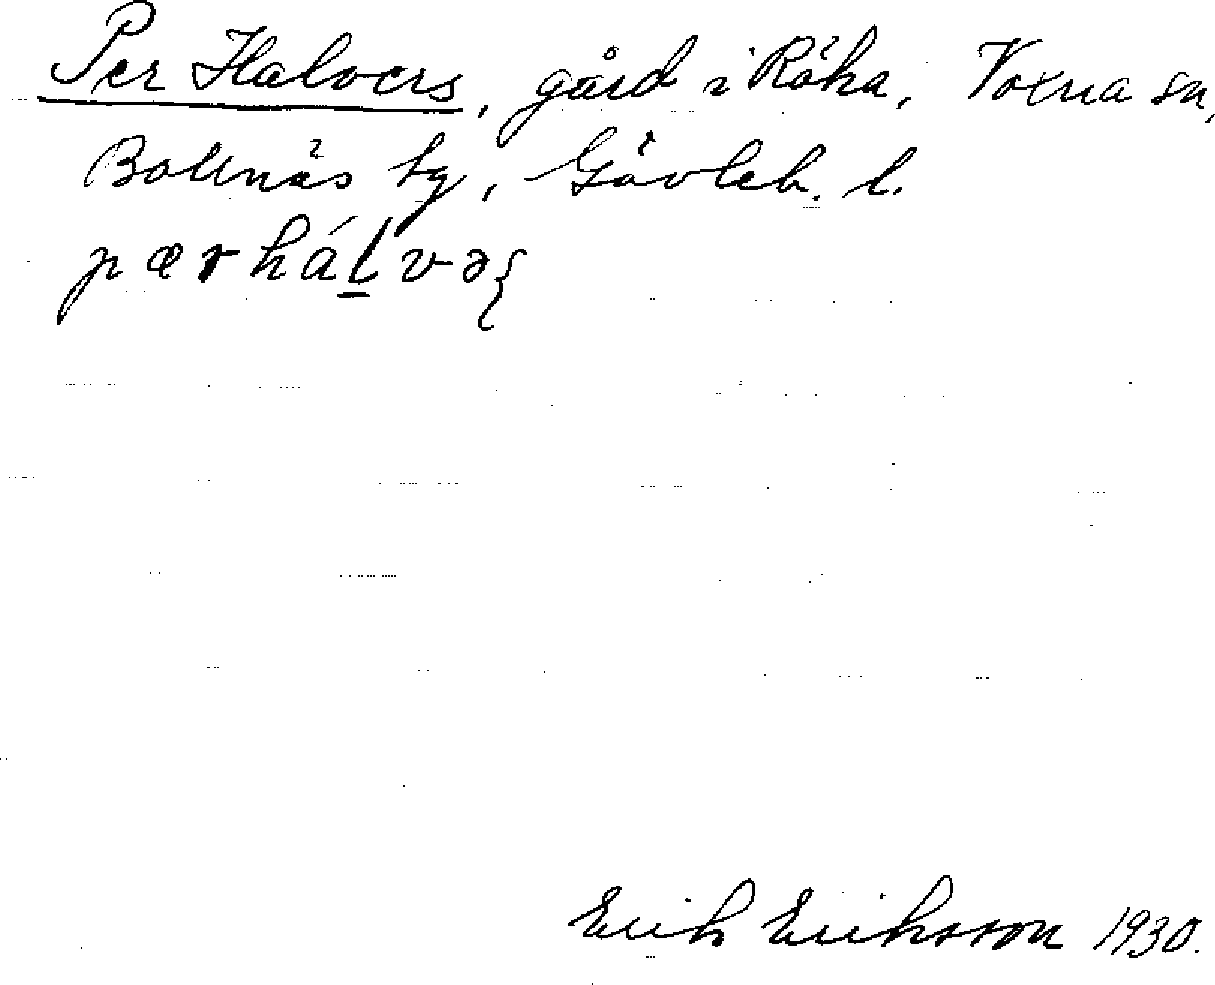 Per Halvers, gård i Råka, Voxna sn,
Bollnäs tg, Gävleb. l.
pærhálvəʃ
Erik Eriksson 1930.